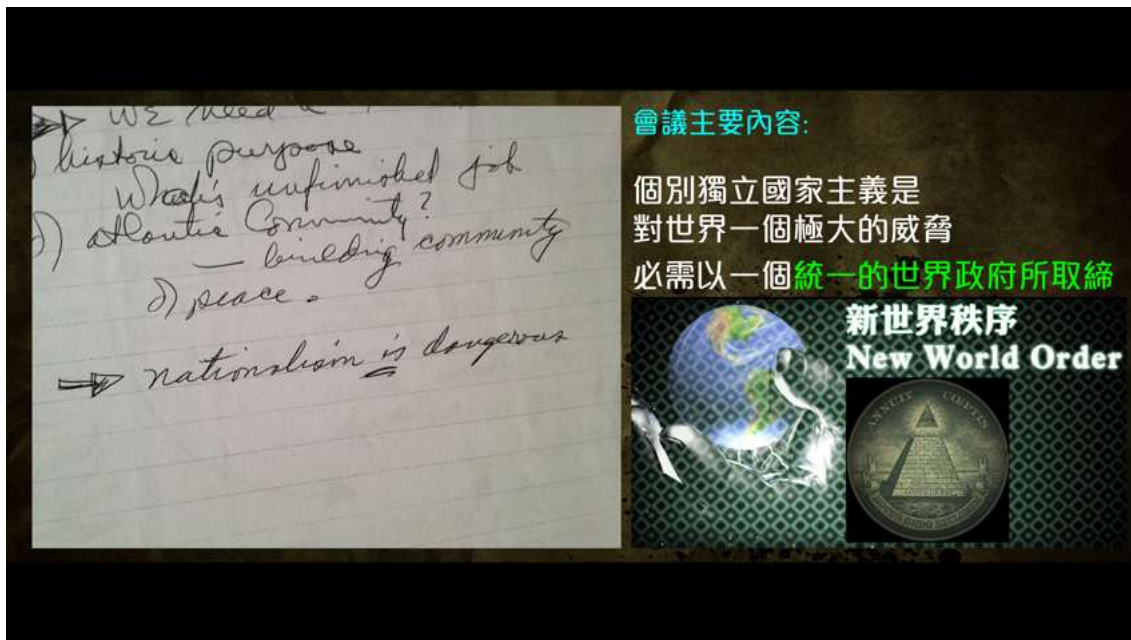 WE need a
historic purpose
What's unfinished job
atlantic Community?
— building community
d) peace.
nationalism is dangerous
會議主要內容:
個別獨立國家主義是
對世界一個極大的威脅
必需以一個統一的世界政府所取締
新世界秩序
New World Order
ANNUIT COEPTIS